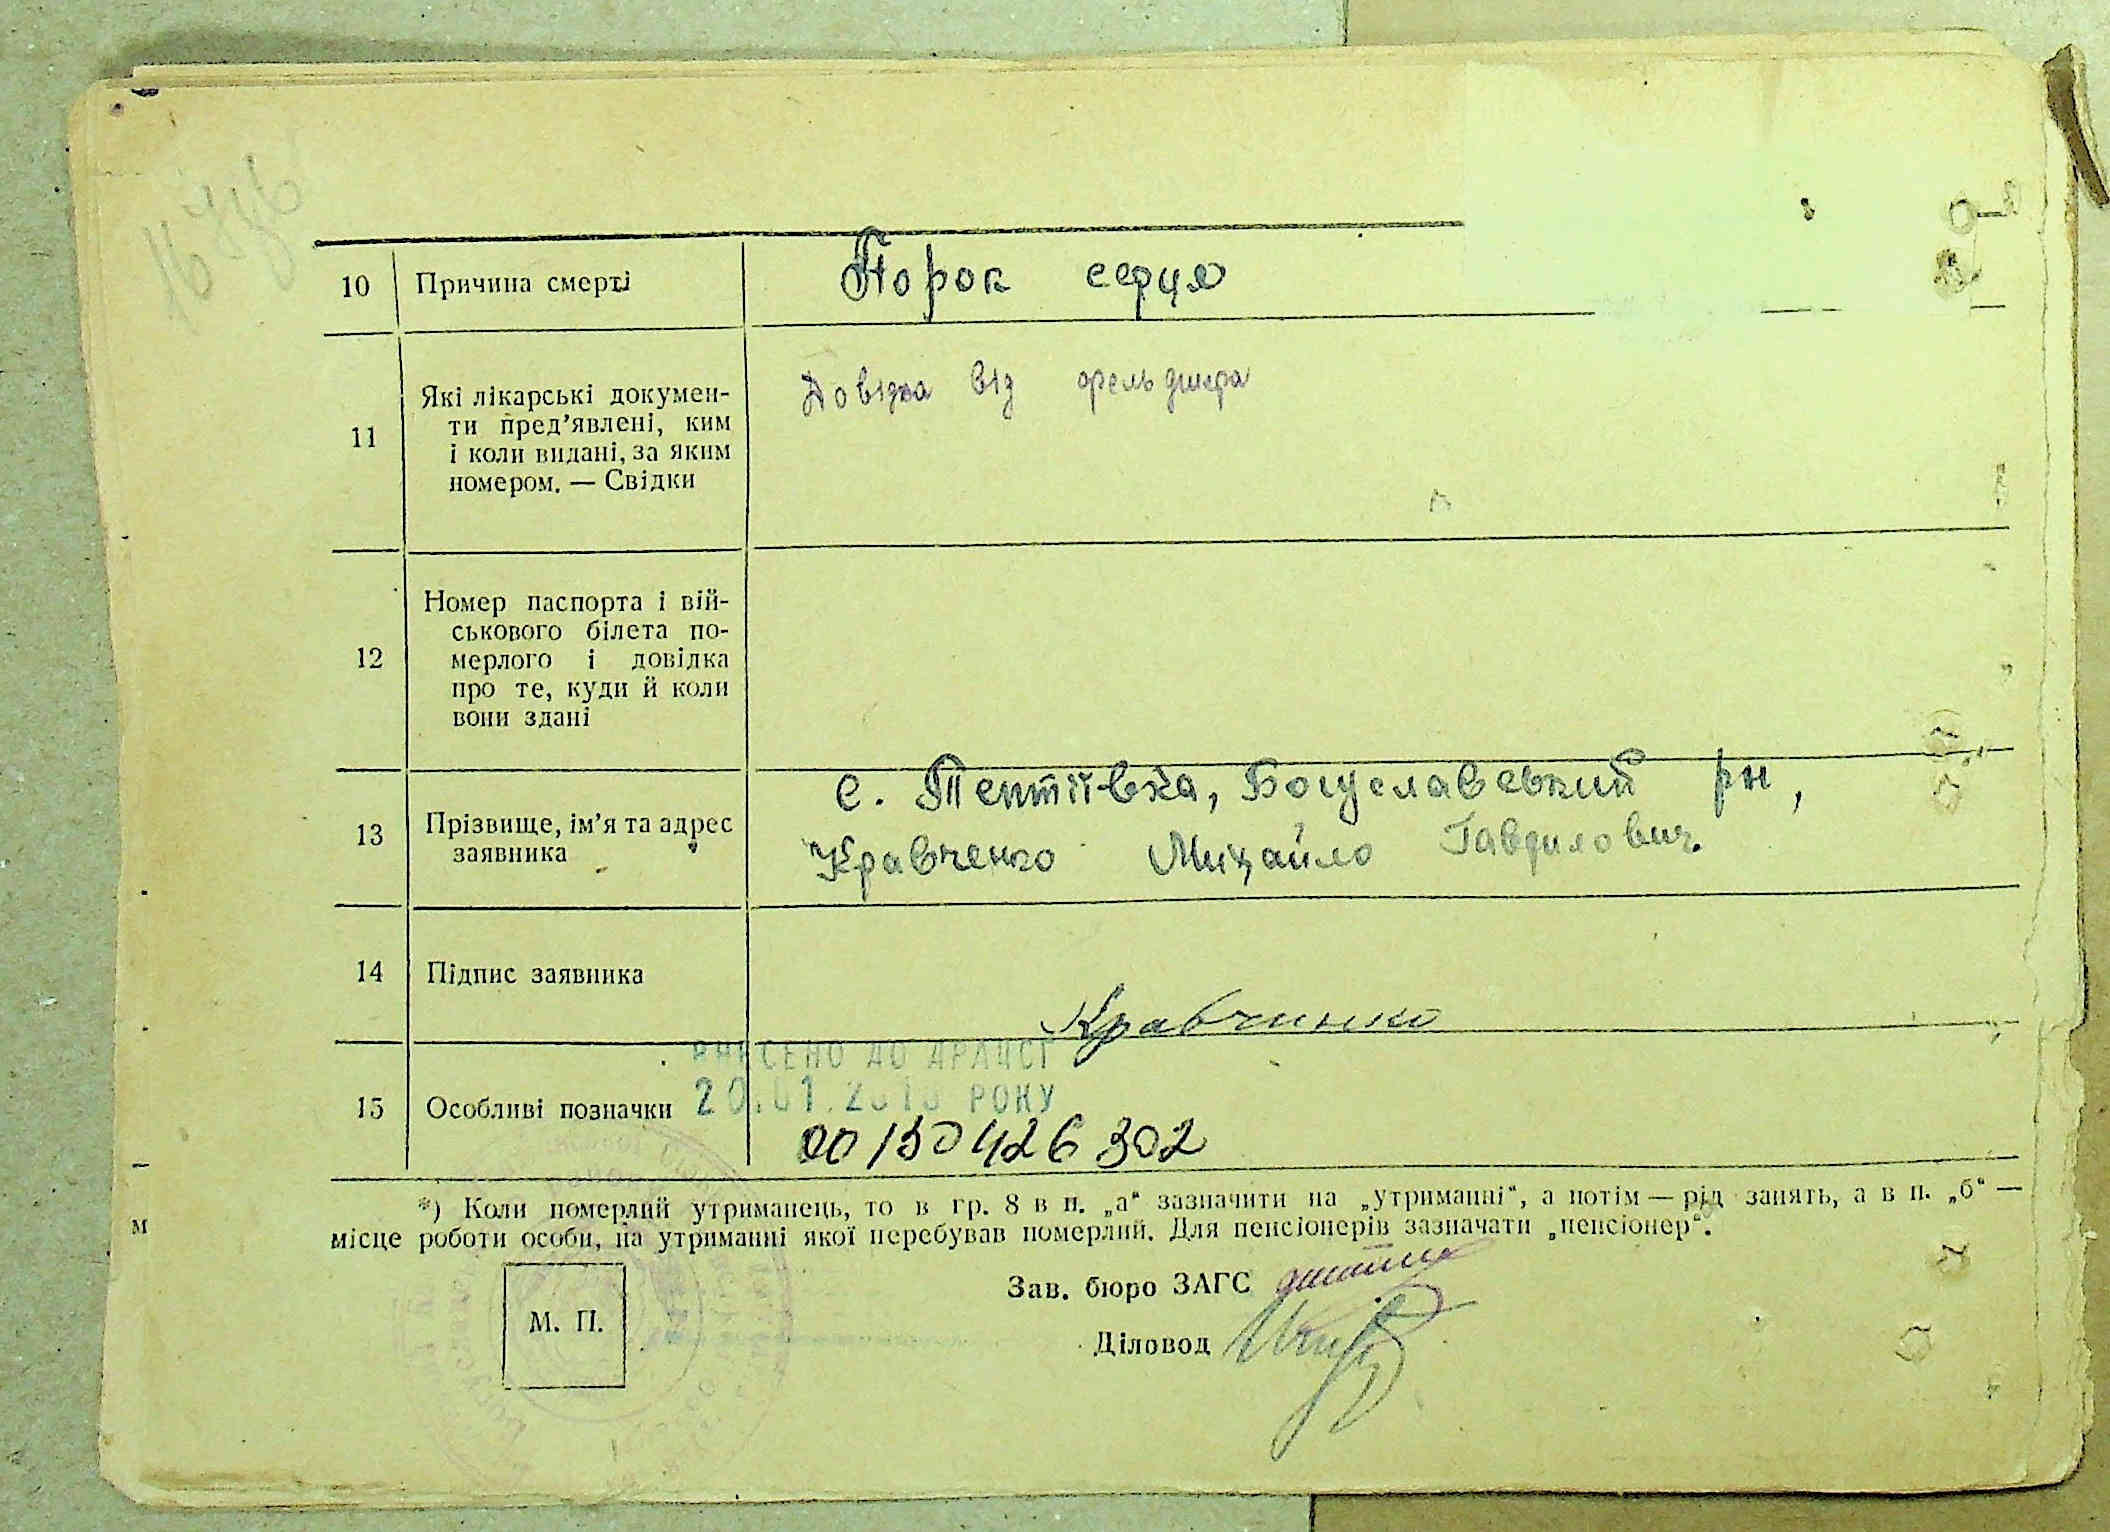 10 Причина смерті Порок серця
11 Які лікарські докумен-
ти пред’явлені, ким
і коли видані, за яким
номером. — Свідки
Довідка від фельдшера
12 Номер паспорта і вій-
ськового білета по-
мерлого і довідка
про те, куди й коли
вони здані
13 Прізвище, ім’я та адрес
заявника
с. Тептіївка, Богуславський рн,
Кравченко Михайло Гаврилович.
14 Підпис заявника
Кравчинко
ВНЕСЕНО ДО ДРАЦСГ
РОКУ
15 Особливі позначки
00150426302
*) Коли померлий утриманець, то в гр. 8 в п. „а“ зазначити на „утриманні“, а потім — рід занять, а в п. „б“ —
місце роботи особи, на утриманні якої перебував померлий. Для пенсіонерів зазначати „пенсіонер“.
м
Зав. бюро ЗАГС
М. П.
Діловод